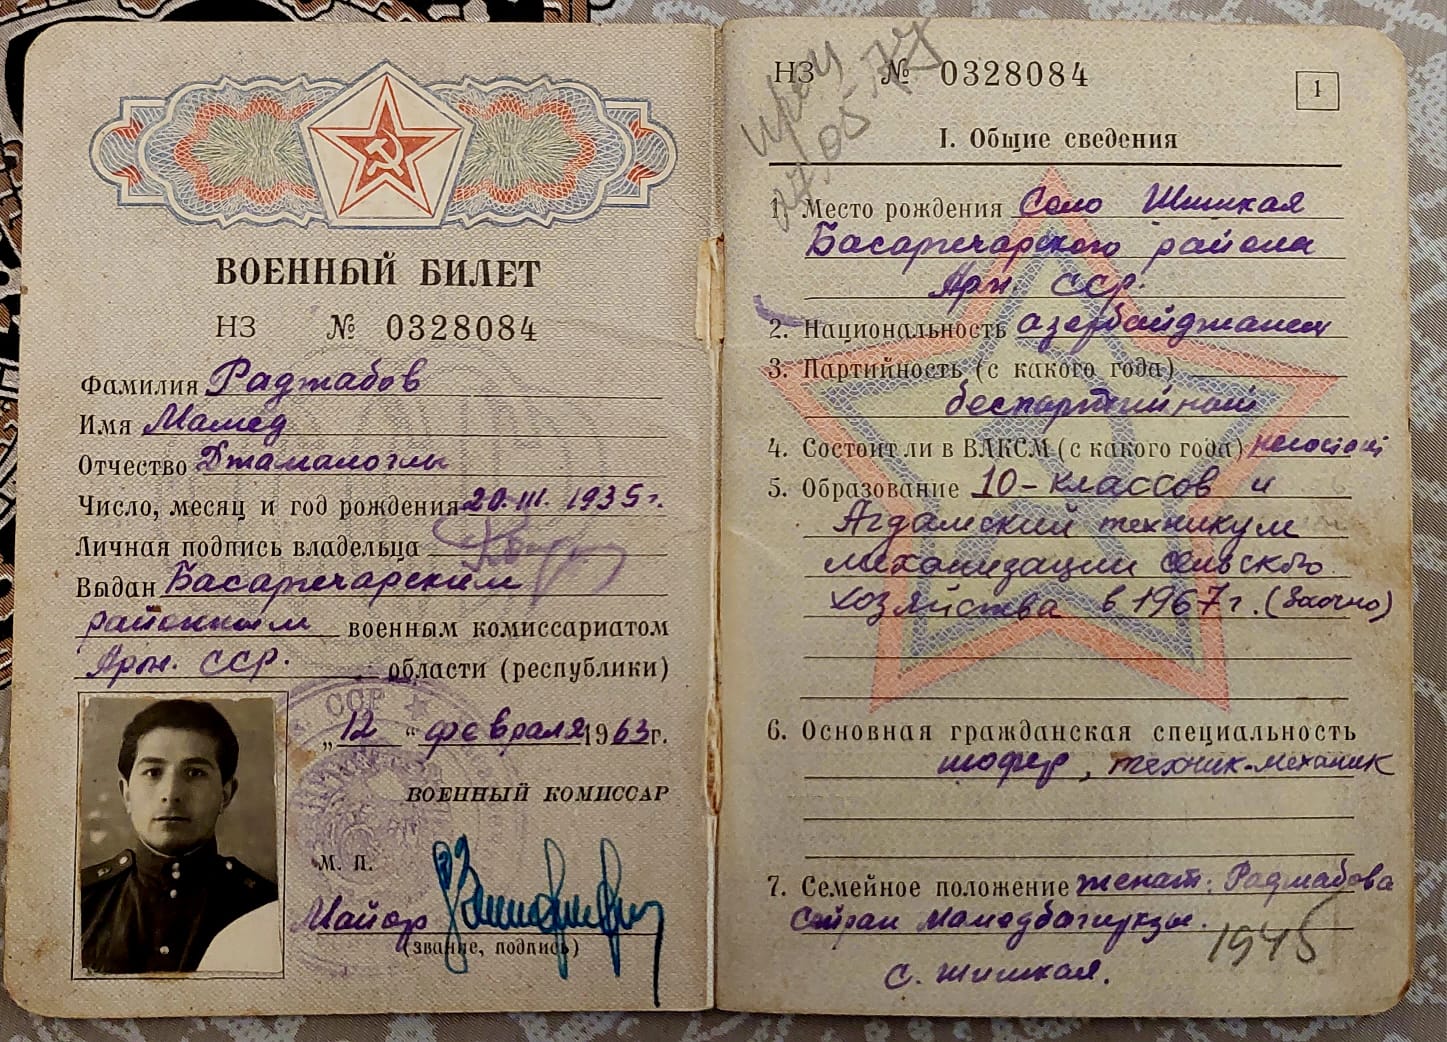 ВОЕННЫЙ БИЛЕТ
НЗ № 0328084
Фамилия Раджабов
Имя Мамед
Отчество Джамалоглы
Число, месяц и год рождения 20.III.1935г.
Личная подпись владельца
Выдан Басаргечарским
районным военным комиссариатом
Арм. ССР. области (республики)
„12“ февраля 1963г.
ВОЕННЫЙ КОМИССАР
М. П.
Майор
(звание, подпись)
ССР
НЗ № 0328084
1
I. Общие сведения
1. Место рождения Село Шишкая
Басаргечарского района
Арм. ССР.
2. Национальность азербайджанец
3. Партийность (с какого года)
беспартийный
4. Состоит ли в ВЛКСМ (с какого года)
5. Образование 10-классов и
Агдамский техникум
механизации сельского
хозяйства в 1967г. (Заочно)
6. Основная гражданская специальность
шофер, техник-механик
7. Семейное положение женат. Раджабова
Мамедбагиркзы.
1945
с. Шишкая.